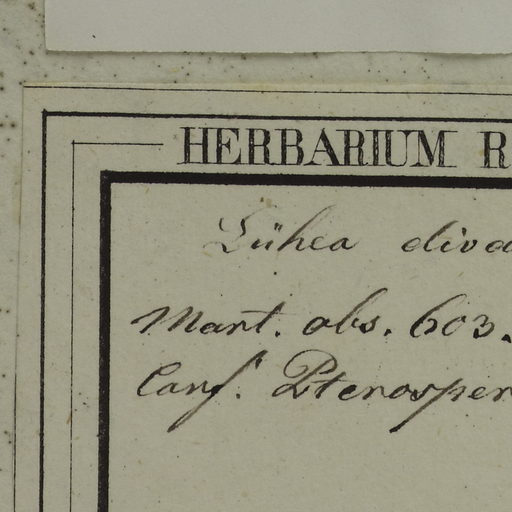 HERBARIUM R
Lühea diva
Mart. obs. 603.
Conf. Pterosper